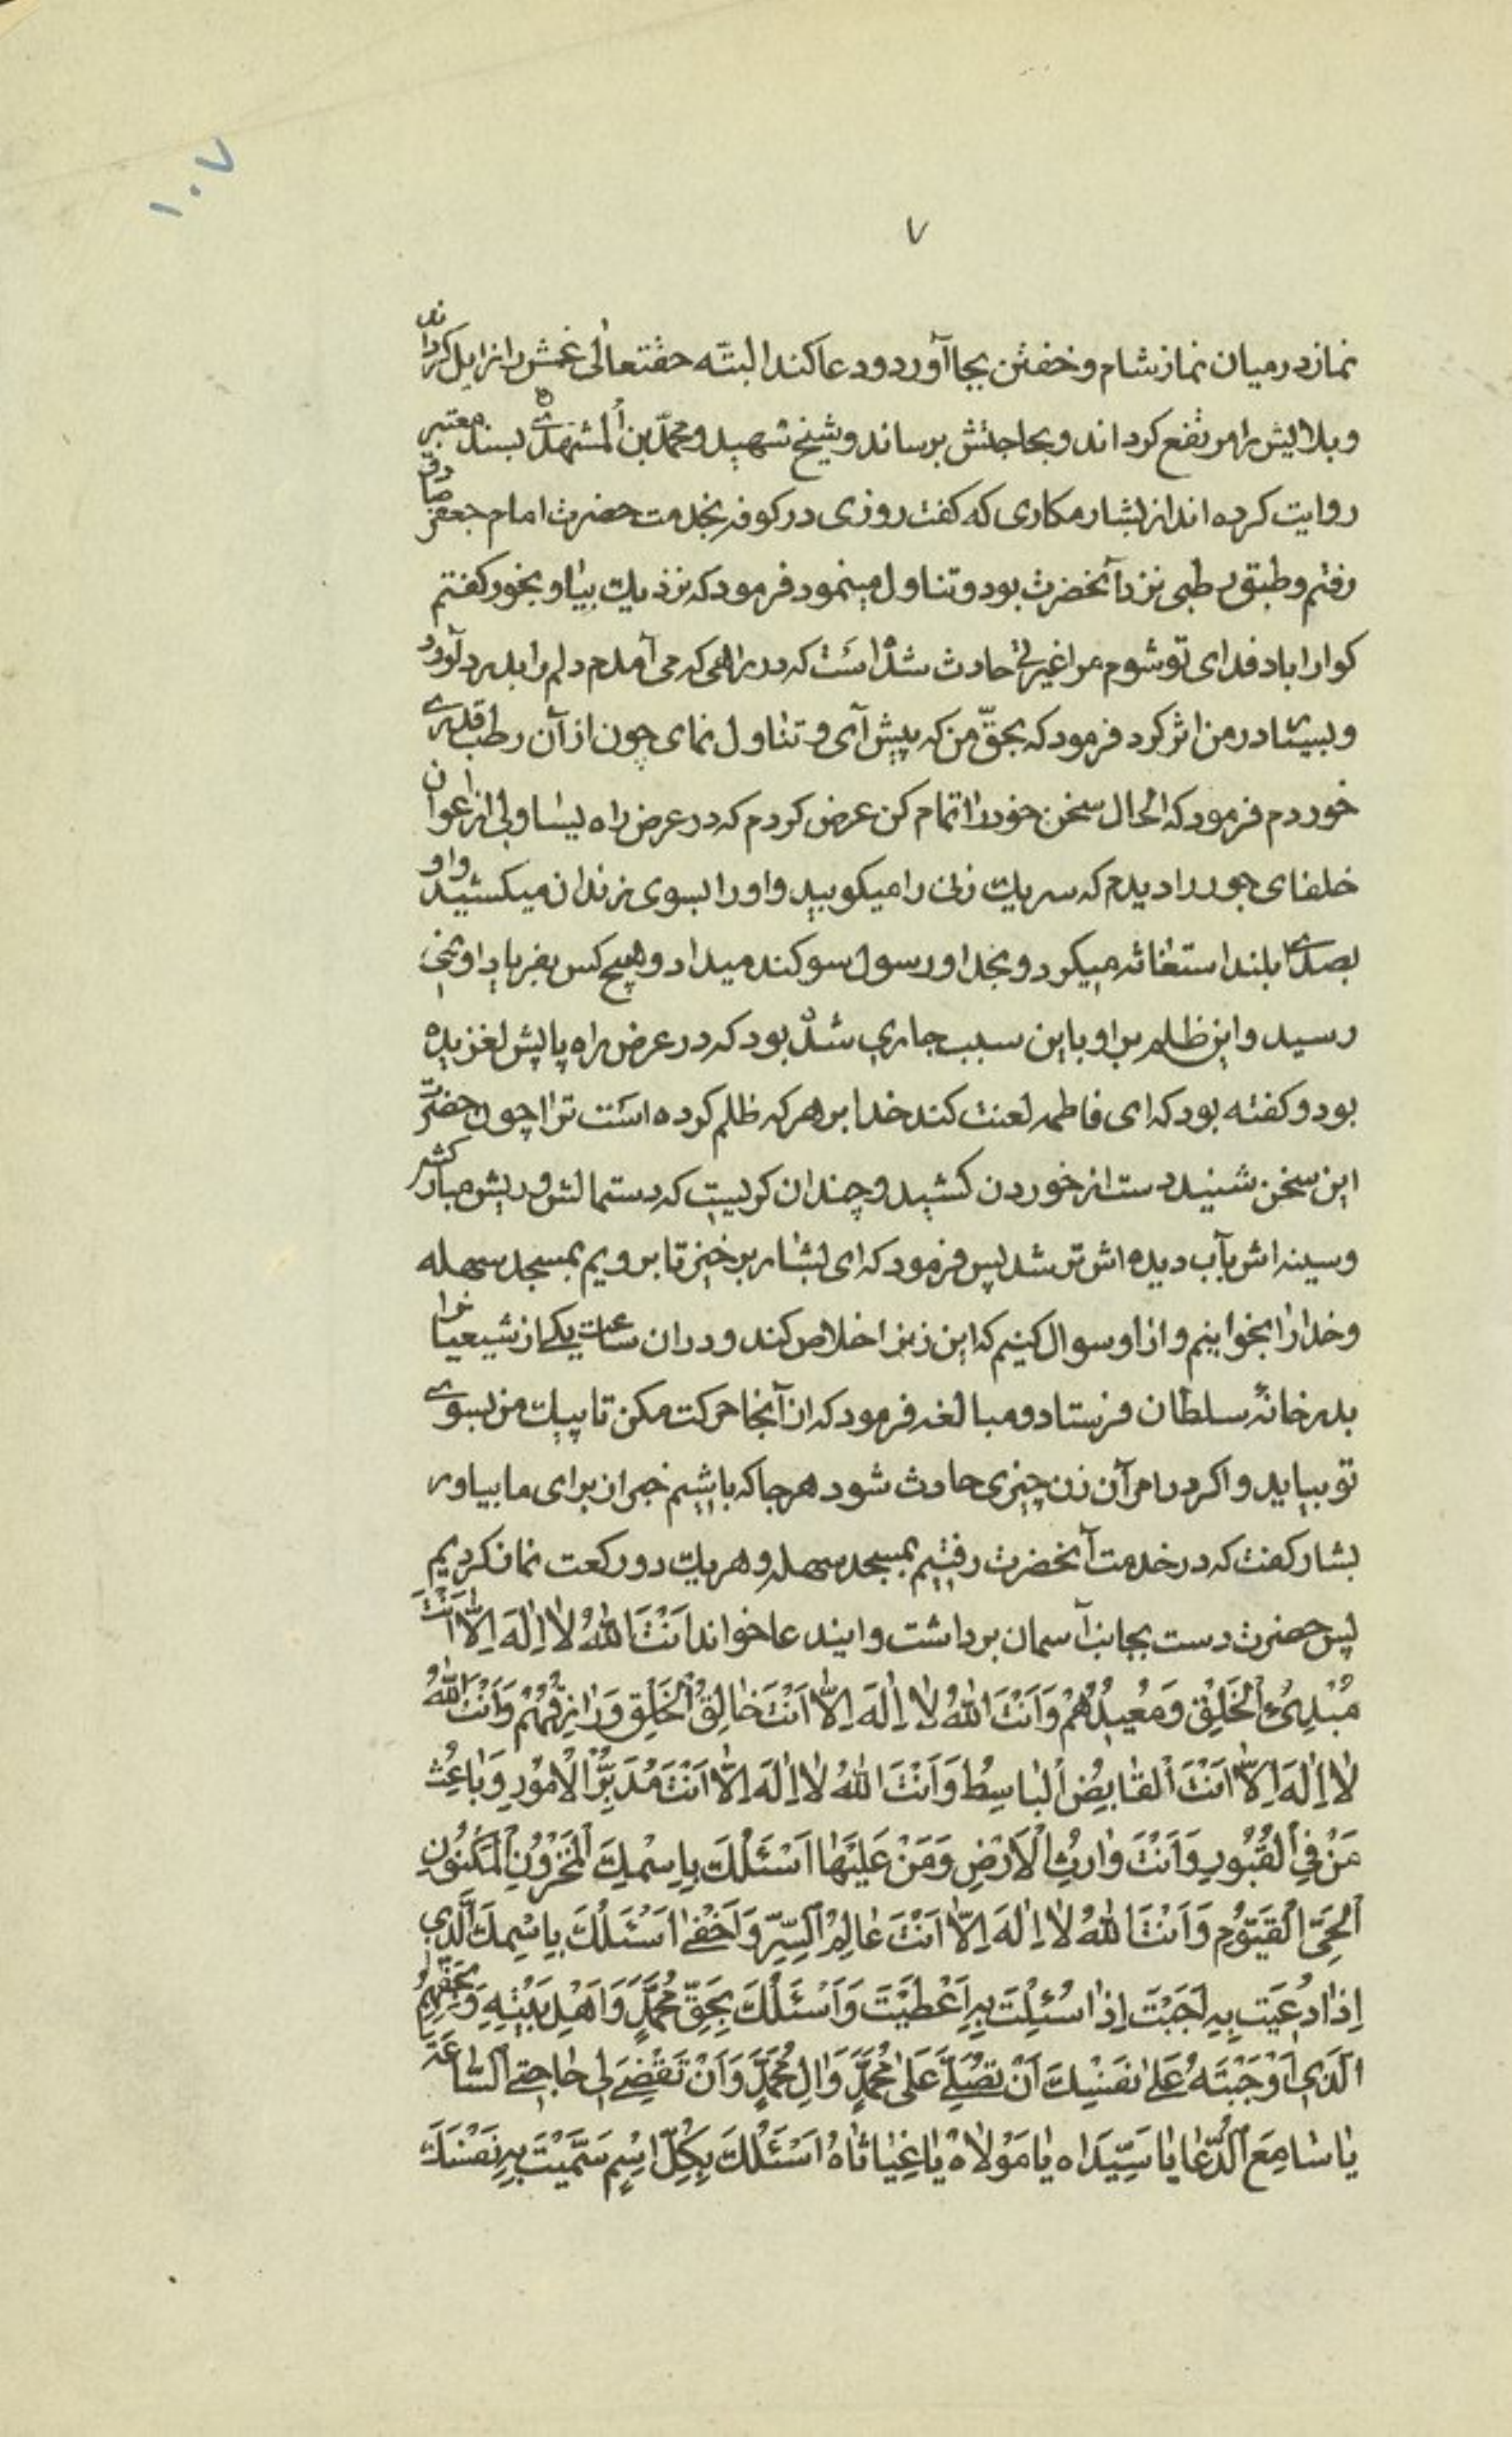 ۱۰۷
۷
نماز در میان نماز شام و خفتن بجا آورد و دعا کند البتّه حقتعالی غمش را زایل کرداند
و بلاایش را مرتفع کرداند و بحاجتش برساند و شیخ شهید و محمّد بن المشهدی بسند معتبر
روایت کرده اند از بشار مکاری که کفت روزی در کوفه بخدمت حضرت امام جعفر صادق
رفتم و طبق رطبی نزد آنحضرت بود و تناول مینمود فرمود که نزدیك بیا و بخور کفتم
کوارا باد فدای تو شوم مرا غیرتی حادث شده است که در راهی که می آمدم دلم را بدرد آورد
و بسیار در من اثر کرد فرمود که بحقّ من که پیش آی و تناول نمای چون از آن رطب قدری
خوردم فرمود که الحال سخن خود را تمام کن عرض کردم که در عرض راه یساولی از اعوان
خلفای جور را دیدم که سر یك زنی را میکوبید و او را بسوی زندان میکشید و او
بصدای بلند استغاثه میکرد و بخدا و رسول سوکند میداد و هیچ کس بفریاد او نمی
رسید و این ظلم بر او باین سبب جاری شده بود که در عرض راه پایش لغزیده
بود و کفته بود که ای فاطمه لعنت کند خدا بر هر که ظلم کرده است ترا چون حضرت
این سخن شنید دست از خوردن کشید و چندان کریست که دستمالش و ریش مبارکش
و سینه اش بآب دیده اش تر شد پس فرمود که ای بشار برخیز تا برویم بمسجد سهله
و خدا را بخوانیم و از او سوال کنیم که این زنرا خلاص کند و در ان ساعت یکی از شیعیانرا
بدر خانهٔ سلطان فرستاد و مبالغه فرمود که از آنجا حرکت مکن تا پیك من بسوی
تو بیاید و اکر در امر آن زن چیزی حادث شود هر جا که باشیم خبر ان برای ما بیاور
بشار کفت که در خدمت آنحضرت رفتیم بمسجد سهله و هر یك دو رکعت نماز کردیم
پس حضرت دست بجانب آسمان برداشت و ایندعا خواند اَنْتَ اللهُ لا اِلٰهَ اِلّا اَنْتَ
مُبْدِئُ الْخَلْقِ وَ مُعِیدُهُمْ وَ اَنْتَ اللهُ لا اِلٰهَ اِلّا اَنْتَ خالِقُ الْخَلْقِ وَ رازِقُهُمْ وَ اَنْتَ اللهُ
لا اِلٰهَ اِلّا اَنْتَ الْقابِضُ الْباسِطُ وَ اَنْتَ اللهُ لا اِلٰهَ اِلّا اَنْتَ مُدَبِّرُ الْاُمُورِ وَ باعِثُ
مَنْ فِی الْقُبُورِ وَ اَنْتَ وارِثُ الْاَرْضِ وَ مَنْ عَلَیْها اَسْئَلُكَ بِاِسْمِكَ الْمَخْزُونِ الْمَكْنُونِ
الْحَیِّ الْقَیُّومِ وَ اَنْتَ اللهُ لا اِلٰهَ اِلّا اَنْتَ عالِمُ السِّرِّ وَ اَخْفی اَسْئَلُكَ بِاسْمِكَ الَّذی
اِذا دُعِیَت بِهِ اَجَبْتَ اِذا سُئِلْتَ بِهِ اَعْطَیْتَ وَ اَسْئَلُكَ بِحَقِّ مُحَمَّدٍ وَ اَهْلِ بَیْتِهِ وَ بِحَقِّهِمُ
الَّذِی اَوْجَبْتَهُ عَلی نَفْسِكَ اَنْ تُصَلِّیَ عَلی مُحَمَّدٍ وَ الِ مُحَمَّدٍ وَ اَنْ تَقْضِیَ لی حاجتی السّاعَةَ
یا سامِعَ الدُّعا یا سَیِّداه یا مَوْلاهْ یا غِیاثاهْ اَسْئَلُكَ بِكُلِّ اسْمٍ سَمَّیْتَ بِهِ نَفْسَكَ